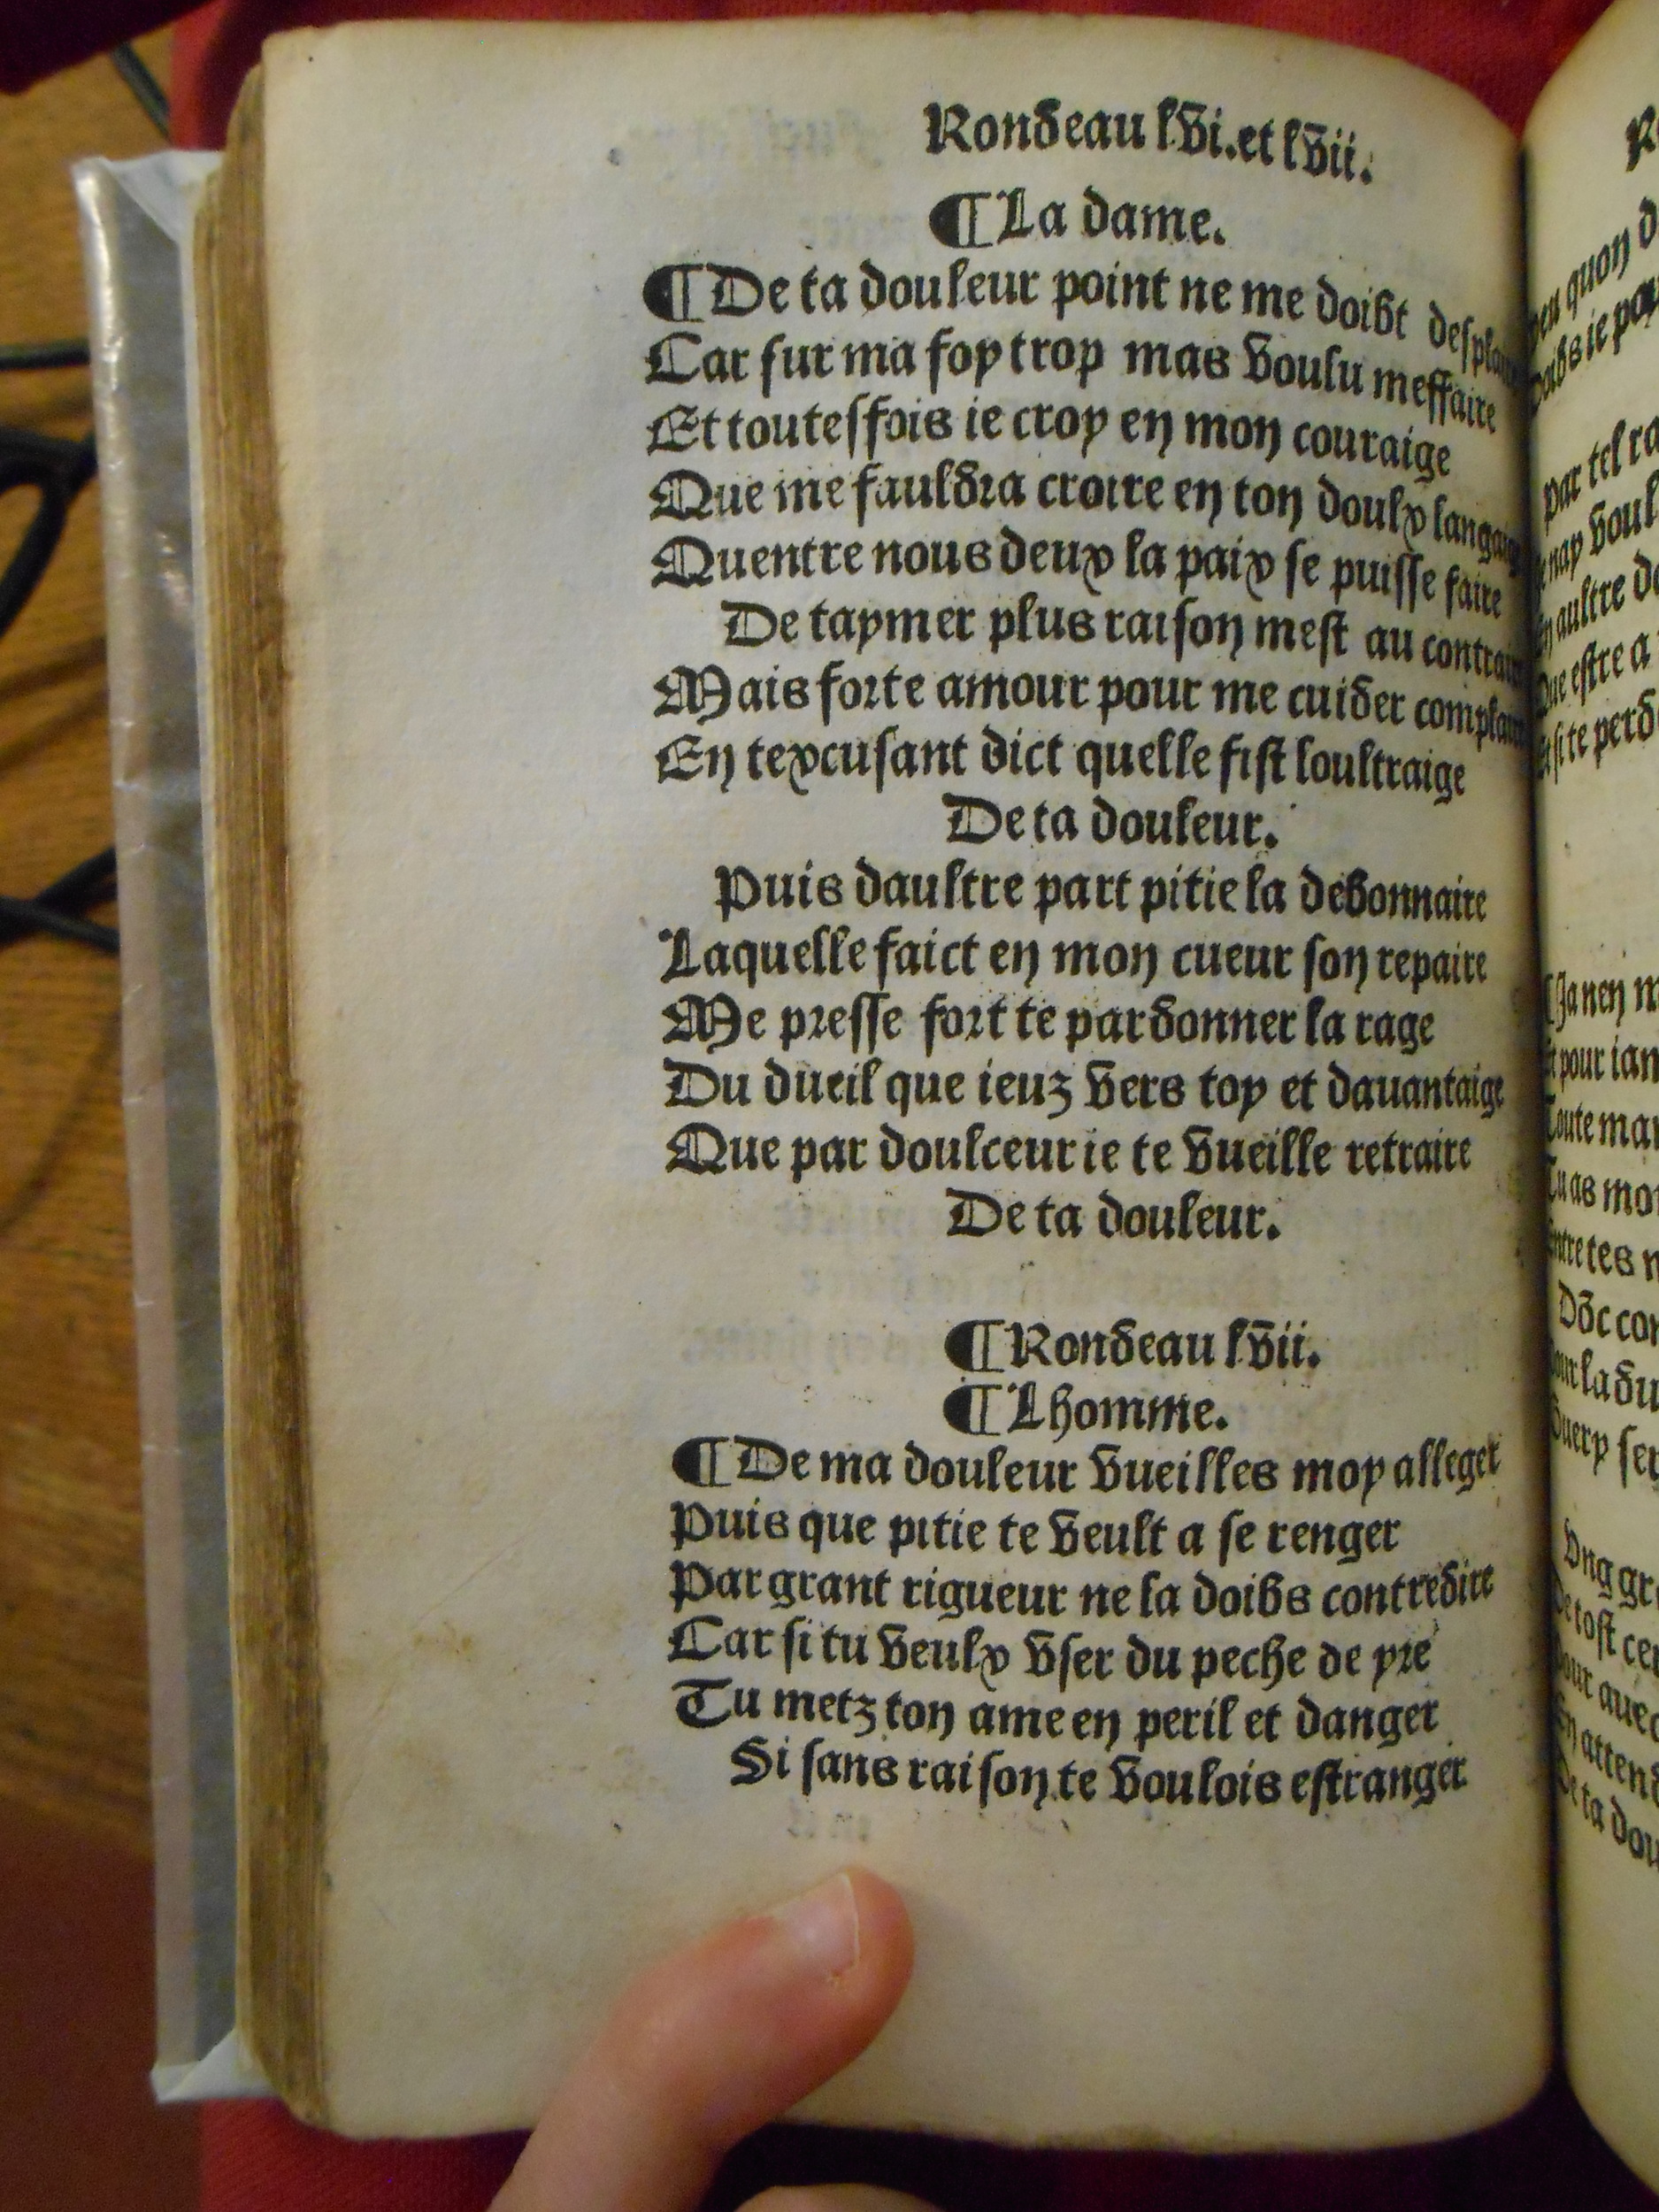 Rondeau lvi. et lvii.
¶ La dame.
¶ De ta douleur point ne me doibt
Car sur ma foy trop mas voulu meffaire
Et toutesfois ie croy en mon couraige
Que me fauldra croire en ton doulx
Quentre nous deux la paix se puisse faire
De taymer plus raison mest au
Mais forte amour pour me cuider
En texcusant dict quelle fist loultraige
De ta douleur.
Puis daultre part pitie la debonnaire
Laquelle faict en mon cueur son repaire
Me presse fort te pardonner la rage
Du dueil que ieuz vers toy et dauantaige
Que par doulceur ie te vueille retraire
De ta douleur.
¶ Rondeau lvii.
¶ Lhomme.
¶ De ma douleur vueilles moy alleger
Puis que pitie te veult a se renger
Par grant rigueur ne la doibs contredire
Car si tu veulx vser du peche de yre
Tu metz ton ame en peril et danger
Si sans raison te voulois estranger
quon
ie
par tel
nay
aultre
estre a
si te
Ja nen
pour
Toute
Tu as
tes
Dõc
la
Vng
tost
attend